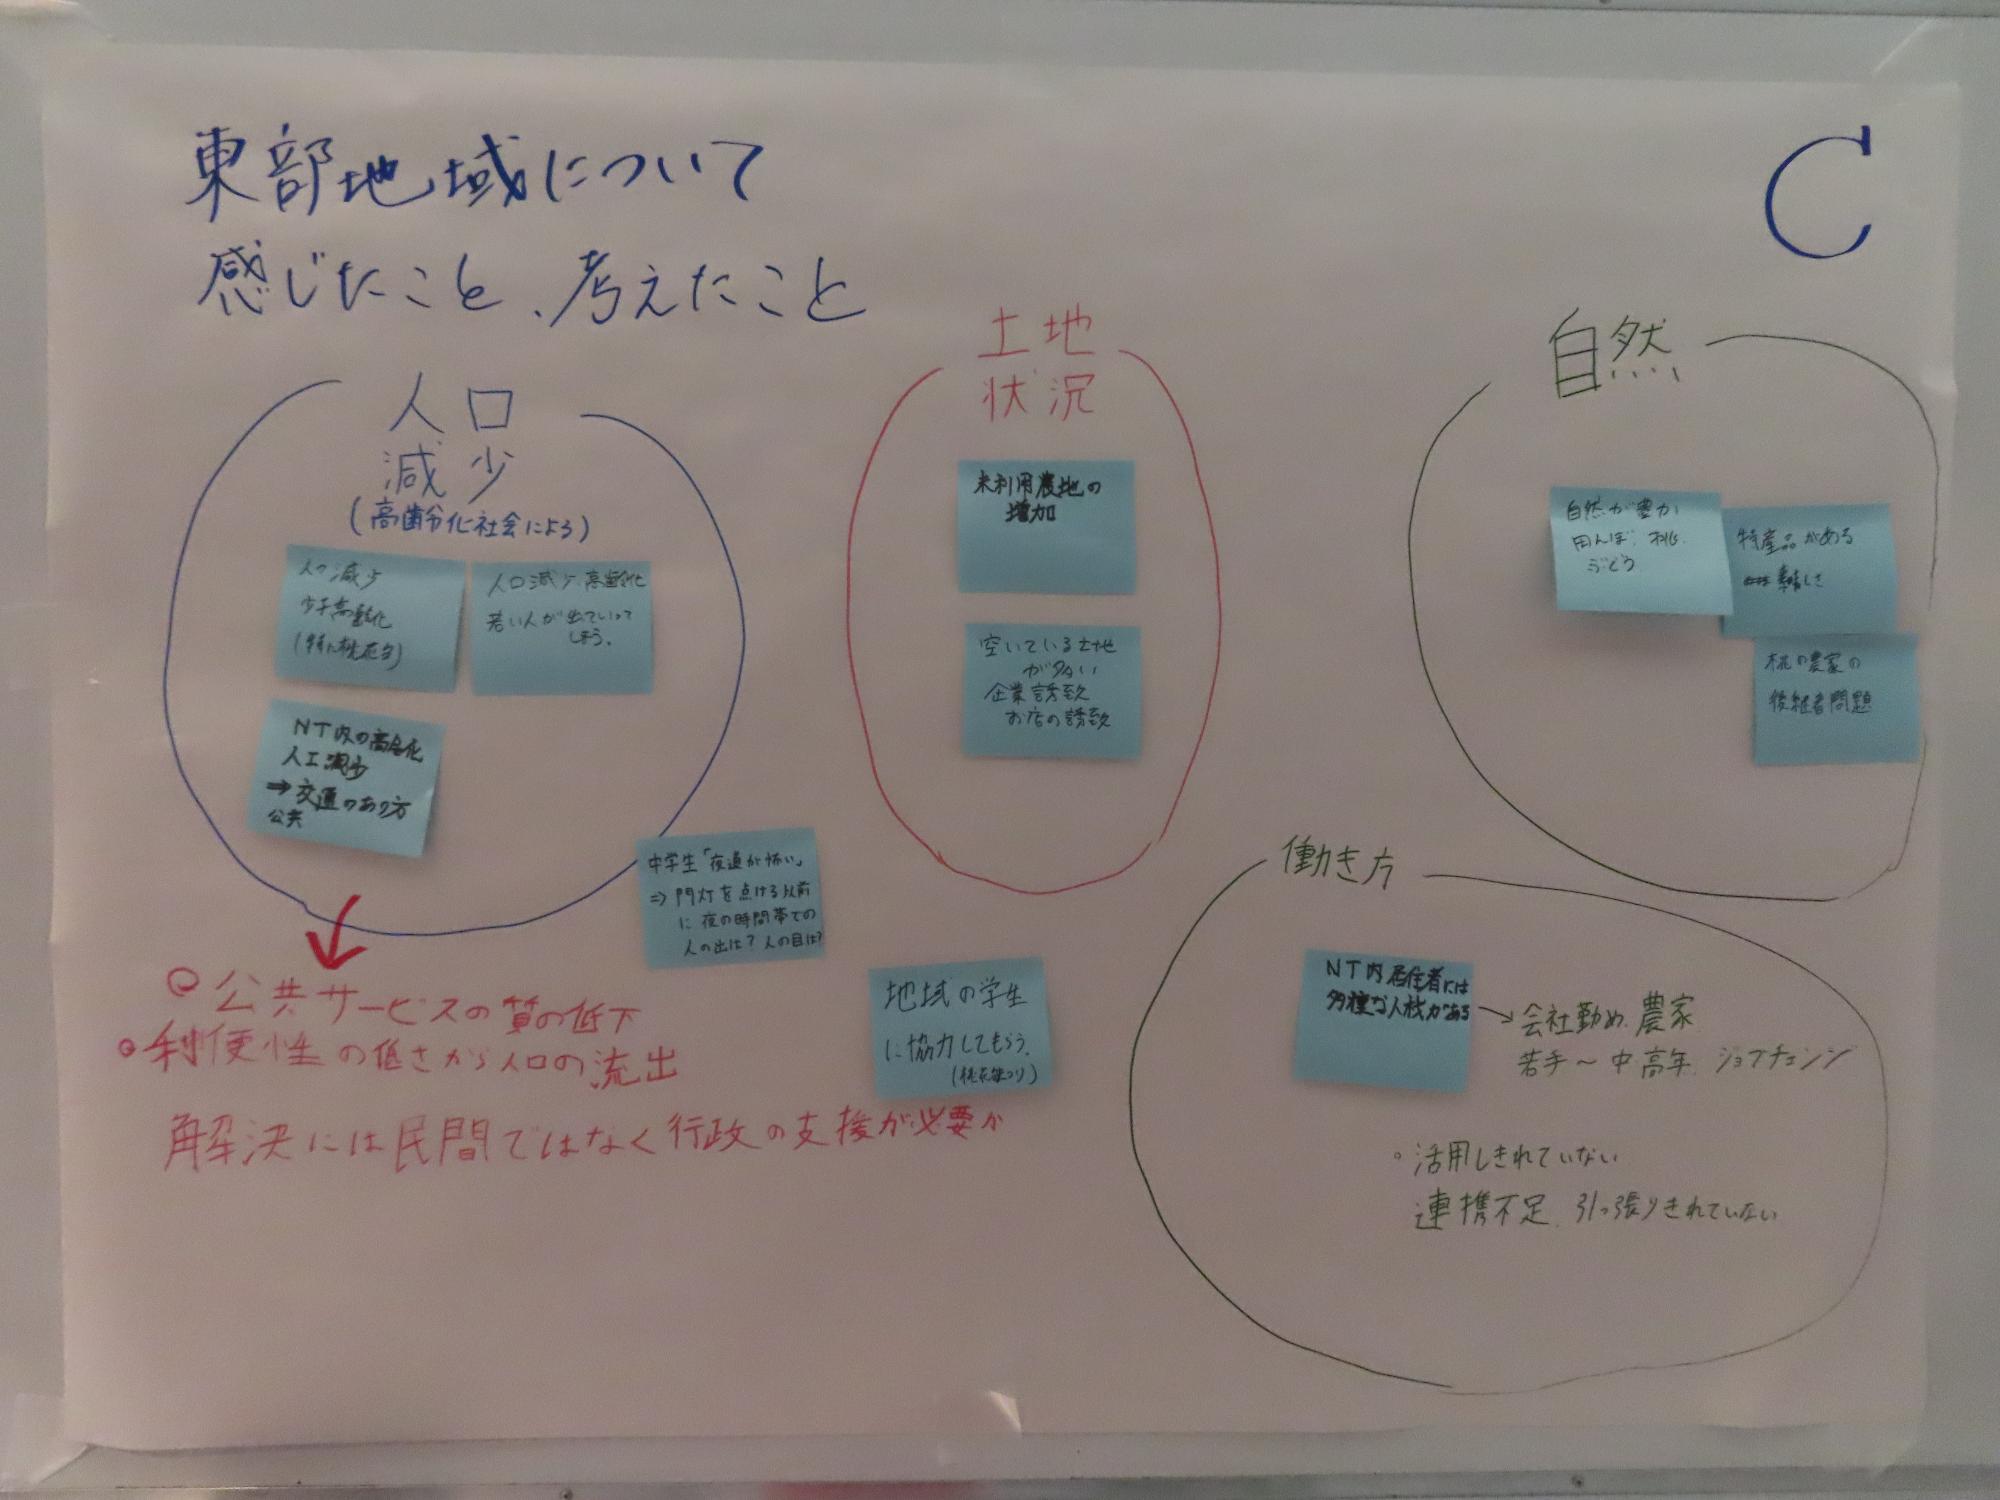 東部地域について
感じたこと、考えたこと
C
人口
減少
(高齢化社会による)
人口減少
少子高齢化
(特に桃花台)
人口減少、高齢化
若い人が出ていって
しまう。
NT内の高令化
人工減少
⇒交通のあり方
公共
中学生「夜道が怖い」
⇒門灯を点ける以前
に夜の時間帯での
人の出は?人の目は?
公共サービスの質の低下
利便性の低さから人口の流出
解決には民間ではなく行政の支援が必要か
土地
状況
未利用農地の
増加
空いている土地
が多い
企業誘致
お店の誘致
地域の学生
に協力してもらう。
(桃花祭つり)
自然
自然が豊か
田んぼ、桃、
ぶどう
特産品がある
桃の農家の
後継者問題
働き方
NT内居住者には
多種な人材がある
会社勤め、農家
若手〜中高年、ジョブチェンジ
。活用しきれていない
連携不足、引っ張りきれていない